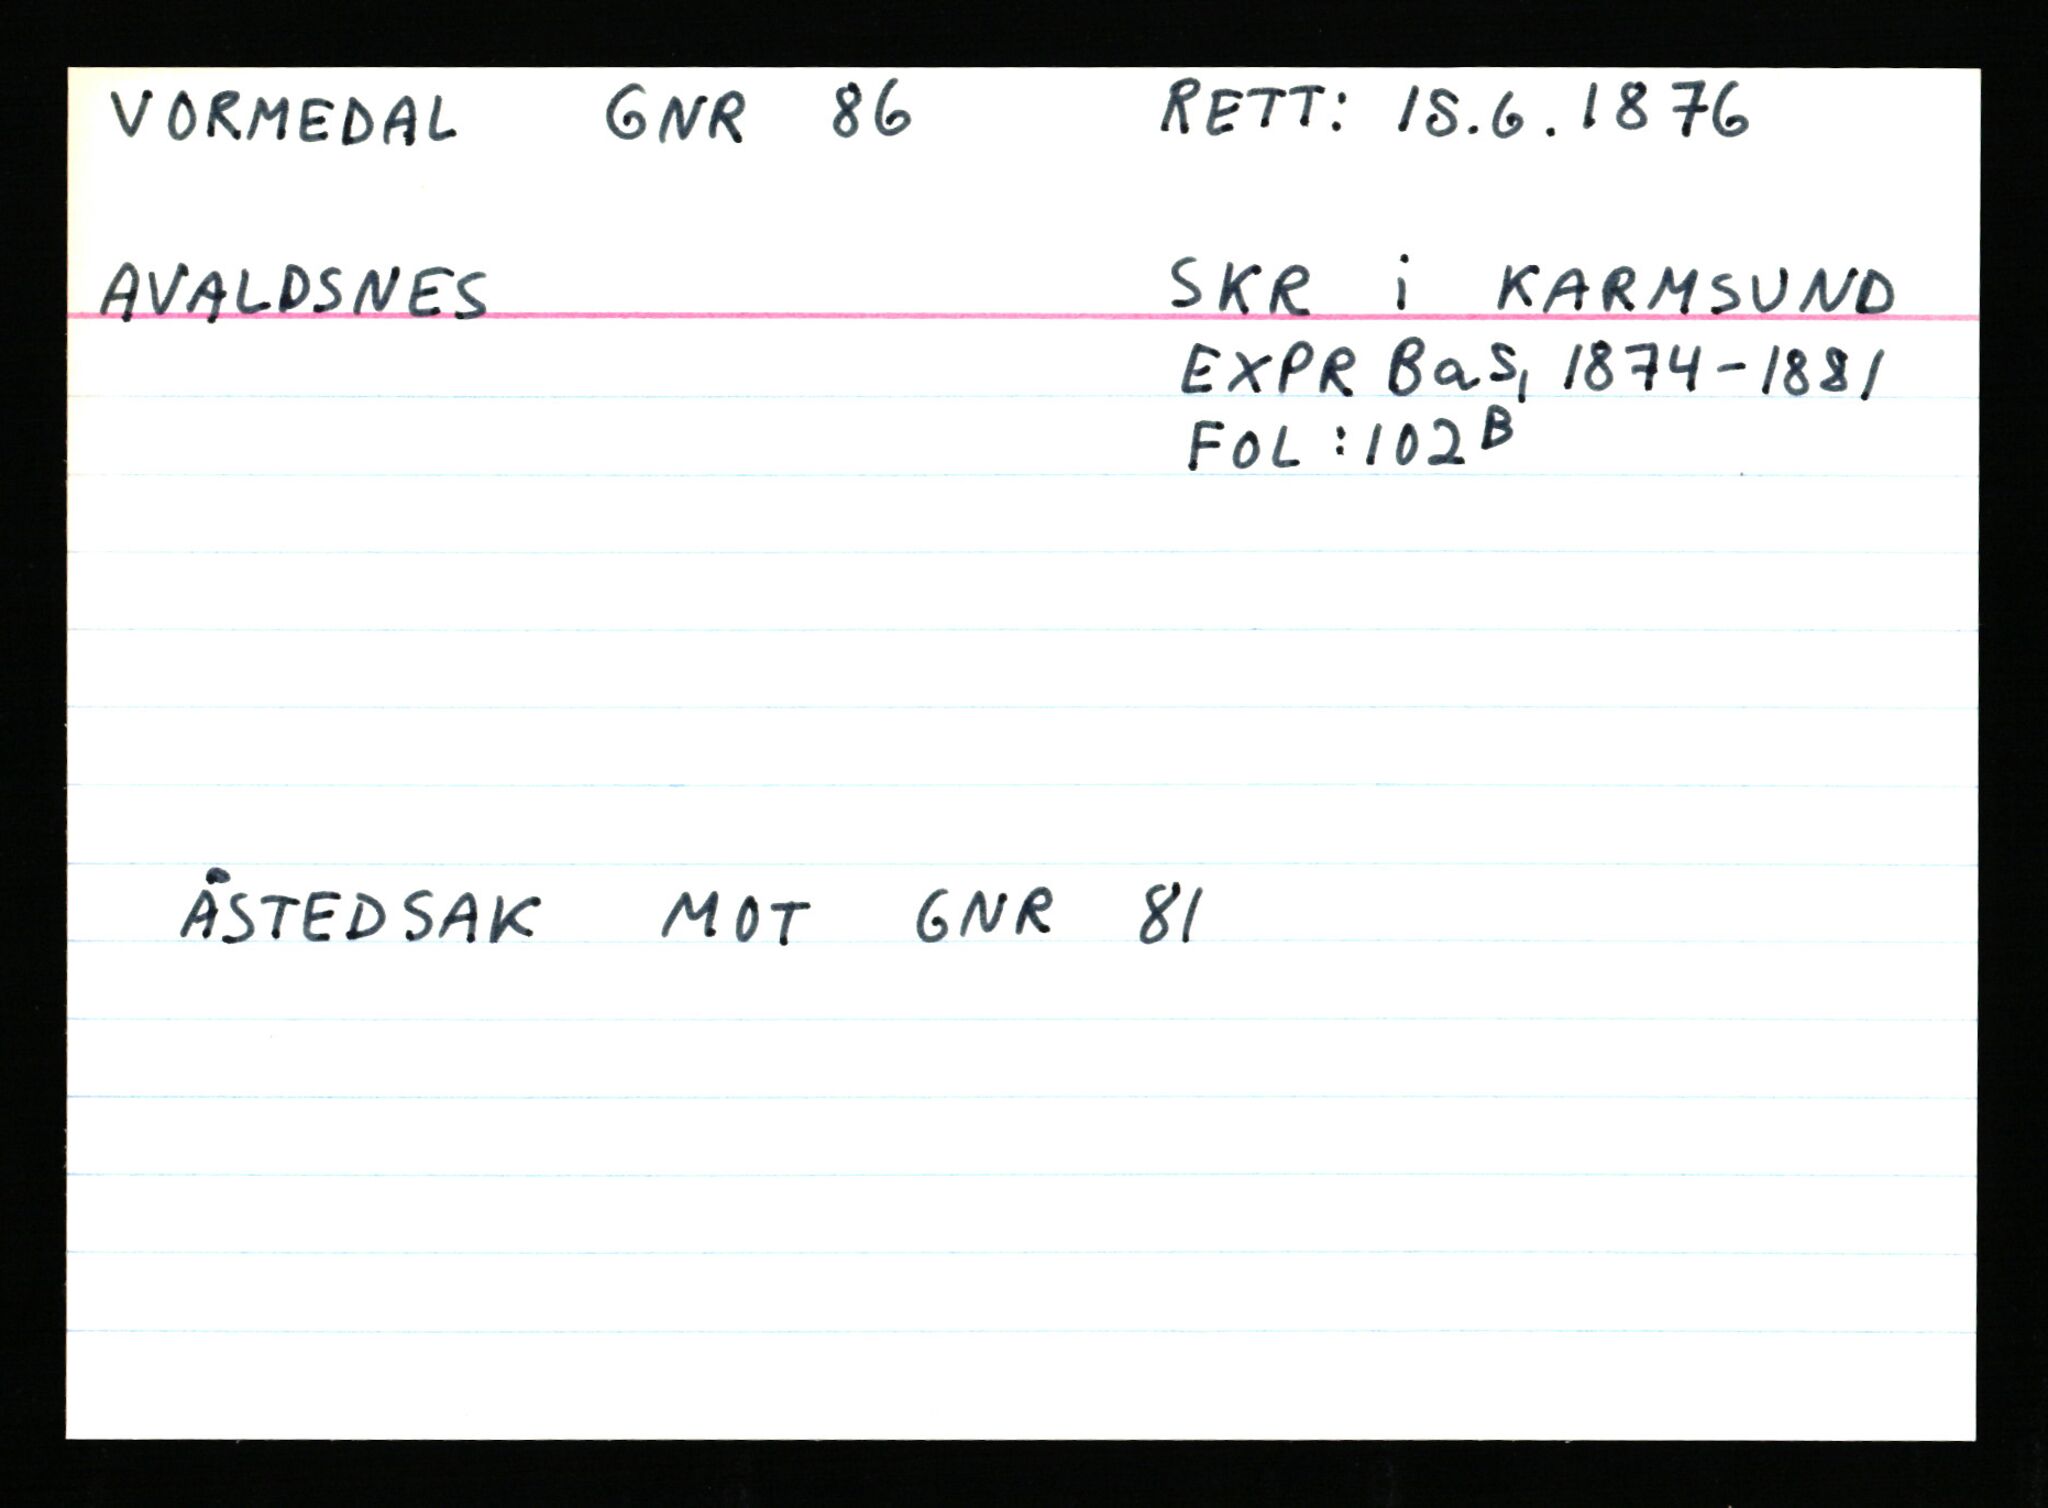 VORMEDAL GNR 86 RETT: 15.6.1876
AVALDSNES SKR i KARMSUND
EXPR BaS, 1874-1881
FOL: 102B
ÅSTEDSAK MOT GNR 81